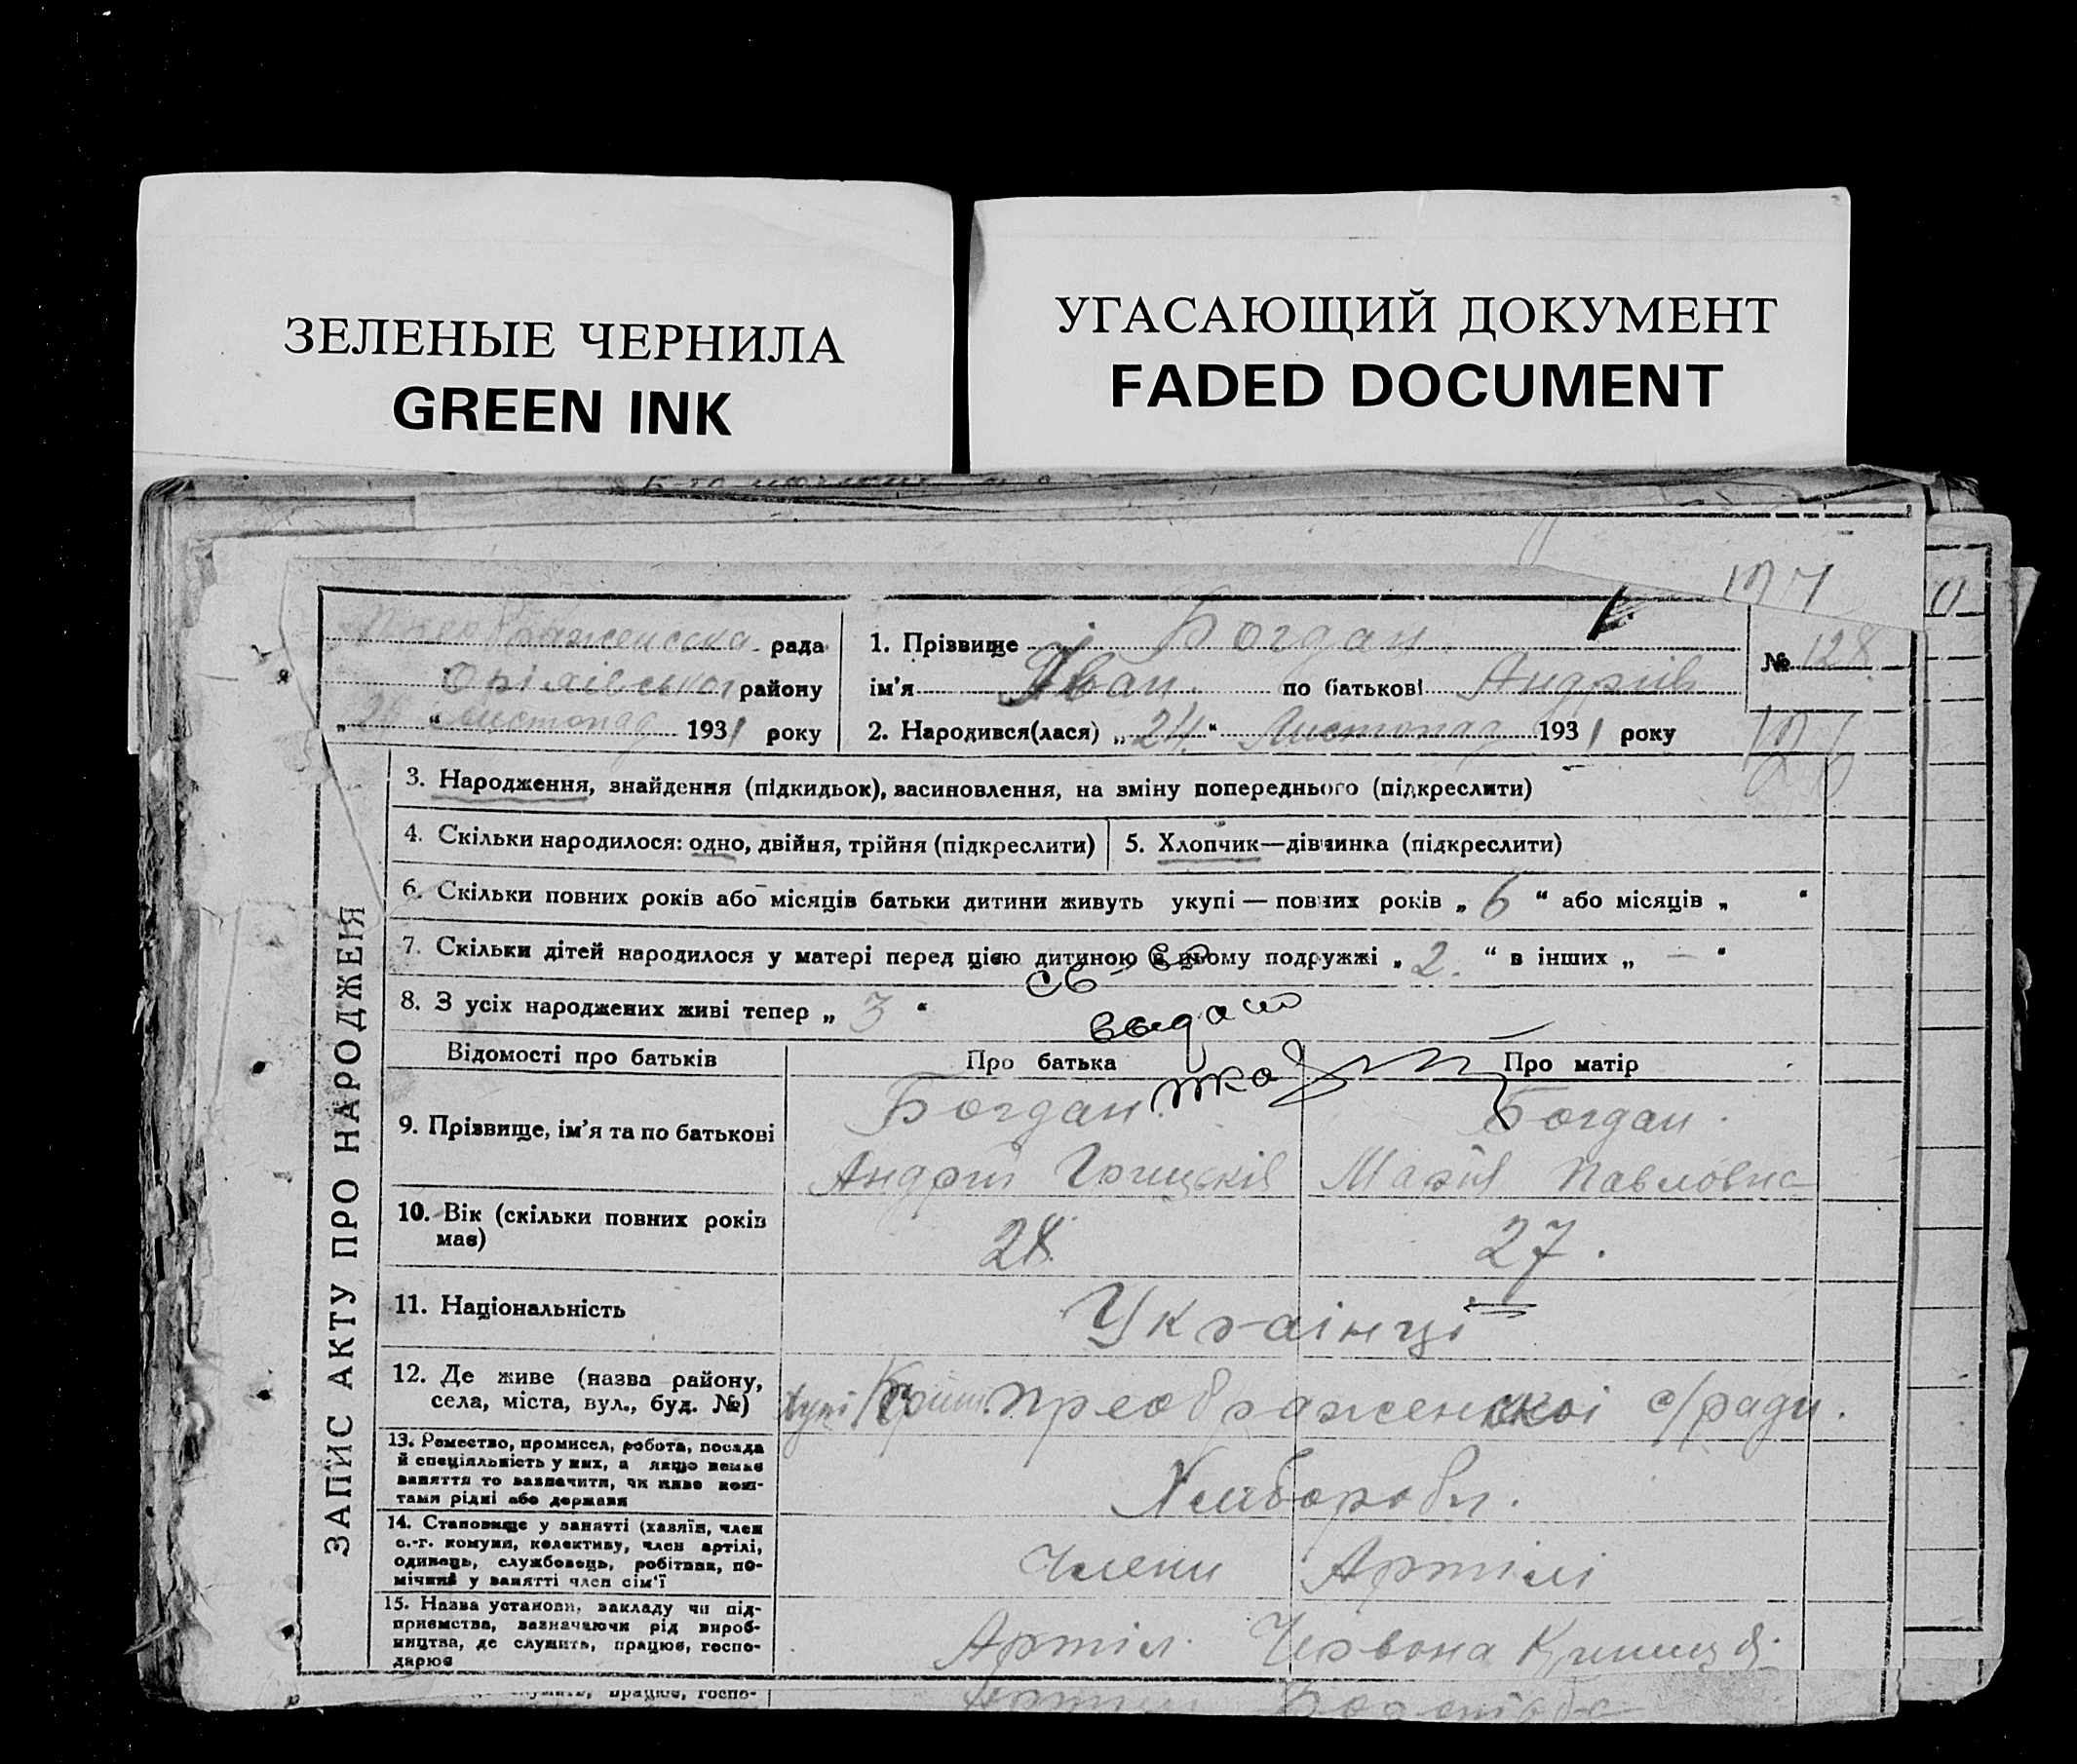 ЗЕЛЕНЫЕ ЧЕРНИЛА
GREEN INK
УГАСАЮЩИЙ ДОКУМЕНТ
FADED DOCUMENT
Преображенська рада
Оріхівського району
„ 26 “ листопад 1931 року
1. Прізвище Богдан
ім’я Іван по батькові Андріїв
2. Народився(лася) „ 24 “ Листопад 1931 року
№ 128
ЗАПИС АКТУ ПРО НАРОДЖЕНЯ
3. Народження, знайдення (підкидьок), васиновлення, на зміну попереднього (підкреслити)
4. Скільки народилося: одно, двійня, трійня (підкреслити)
5. Хлопчик—дівчинка (підкреслити)
6. Скільки повних років або місяців батьки дитини живуть укупі — повних років „ 6 “ або місяців „ “
7. Скільки дітей народилося у матері перед цією дитиною в цьому подружжі „ 2. “ в інших „ — “
8. З усіх народжених живі тепер „ 3 “
св-во
выдано
Відомості про батьків
Про батька
Про матір
9. Прізвище, ім’я та по батькові
Богдан
Андрій Грицьків
Богдан.
Марія Павловна
10. Вік (скільки повних років має)
28
27.
11. Національність
Українці
12. Де живе (назва району,
села, міста, вул., буд. №)
Преображенської с/ради.
13. Ремество, промисел, робота, посада
й спеціальність у них, а якщо немає
заняття то зазначити, чи живе кош-
тами рідні або держави
Хлібороби.
14. Становище у занятті (хазяїн, член
с.-г. комуни, колективу, член артілі,
одинець, службовець, робітник, по-
мічний у занятті член сім’ї
Члени Артілі
15. Назва установи, закладу чи під-
приємства, зазначаючи рід вироб-
ництва, де служить, працює, госпо-
дарює
Артіл. Червона Криниця.
працює, госпо-